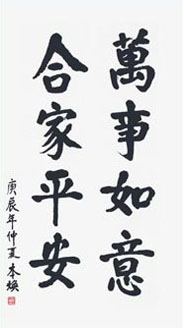 萬事如意
合家平安
庚辰年仲夏本焕